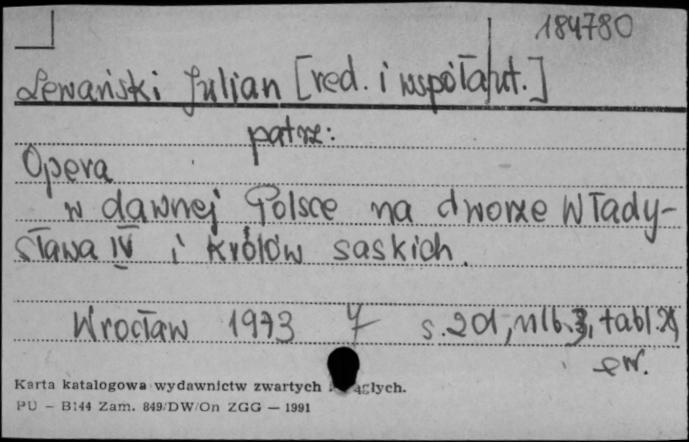 184780
Lewański Julian [red. i współaut.]
patrz:
Opera
w dawnej Polsce na dworze Włady-
sława IV i królów saskich.
Wrocław 1973 s. 201, nlb. 3, tabl.
ew.
Karta katalogowa wydawnictw zwartych i ciągłych.
PU – B144 Zam. 849/DW/On ZGG — 1991